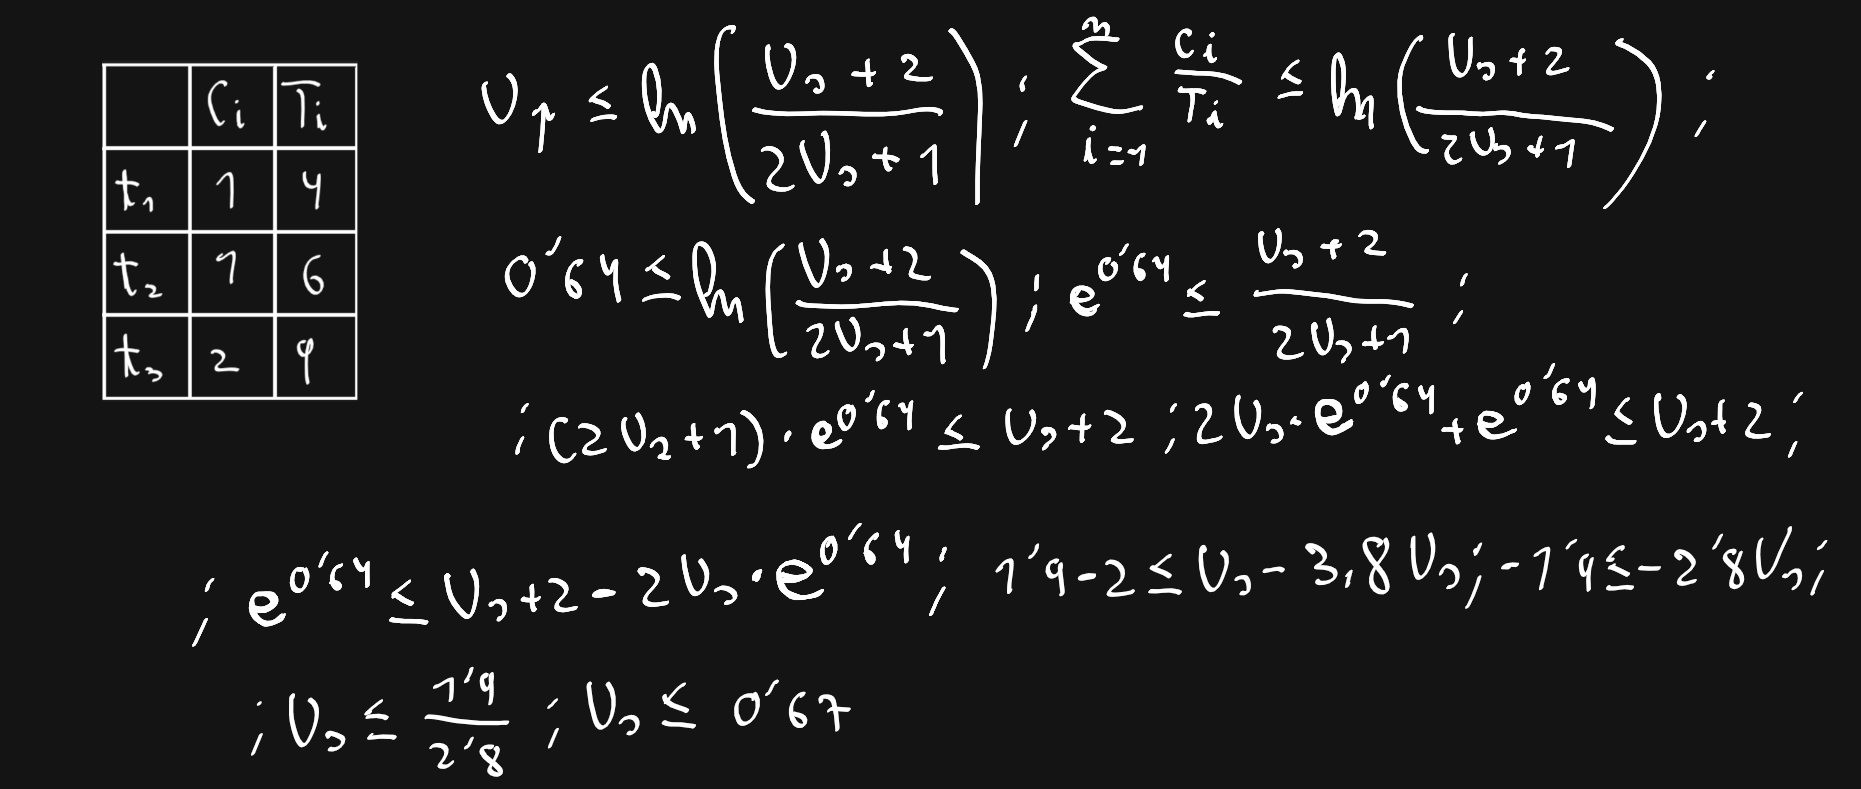 Ci Ti
t1 1 4
t2 1 6
t3 2 9
Up ≤ ln((Us + 2)/(2Us + 1)) ; Σ_{i=1}^{n} Ci/Ti ≤ ln((Us + 2)/(2Us + 1)) ;
0'64 ≤ ln((Us + 2)/(2Us + 1)) ; e^{0'64} ≤ (Us + 2)/(2Us + 1) ;
; (2Us + 1) · e^{0'64} ≤ Us + 2 ; 2Us · e^{0'64} + e^{0'64} ≤ Us + 2 ;
; e^{0'64} ≤ Us + 2 - 2Us · e^{0'64} ; 1'9 - 2 ≤ Us - 3,8Us ; -1'9 ≤ -2'8Us ;
; Us ≤ 1'9/2'8 ; Us ≤ 0'67